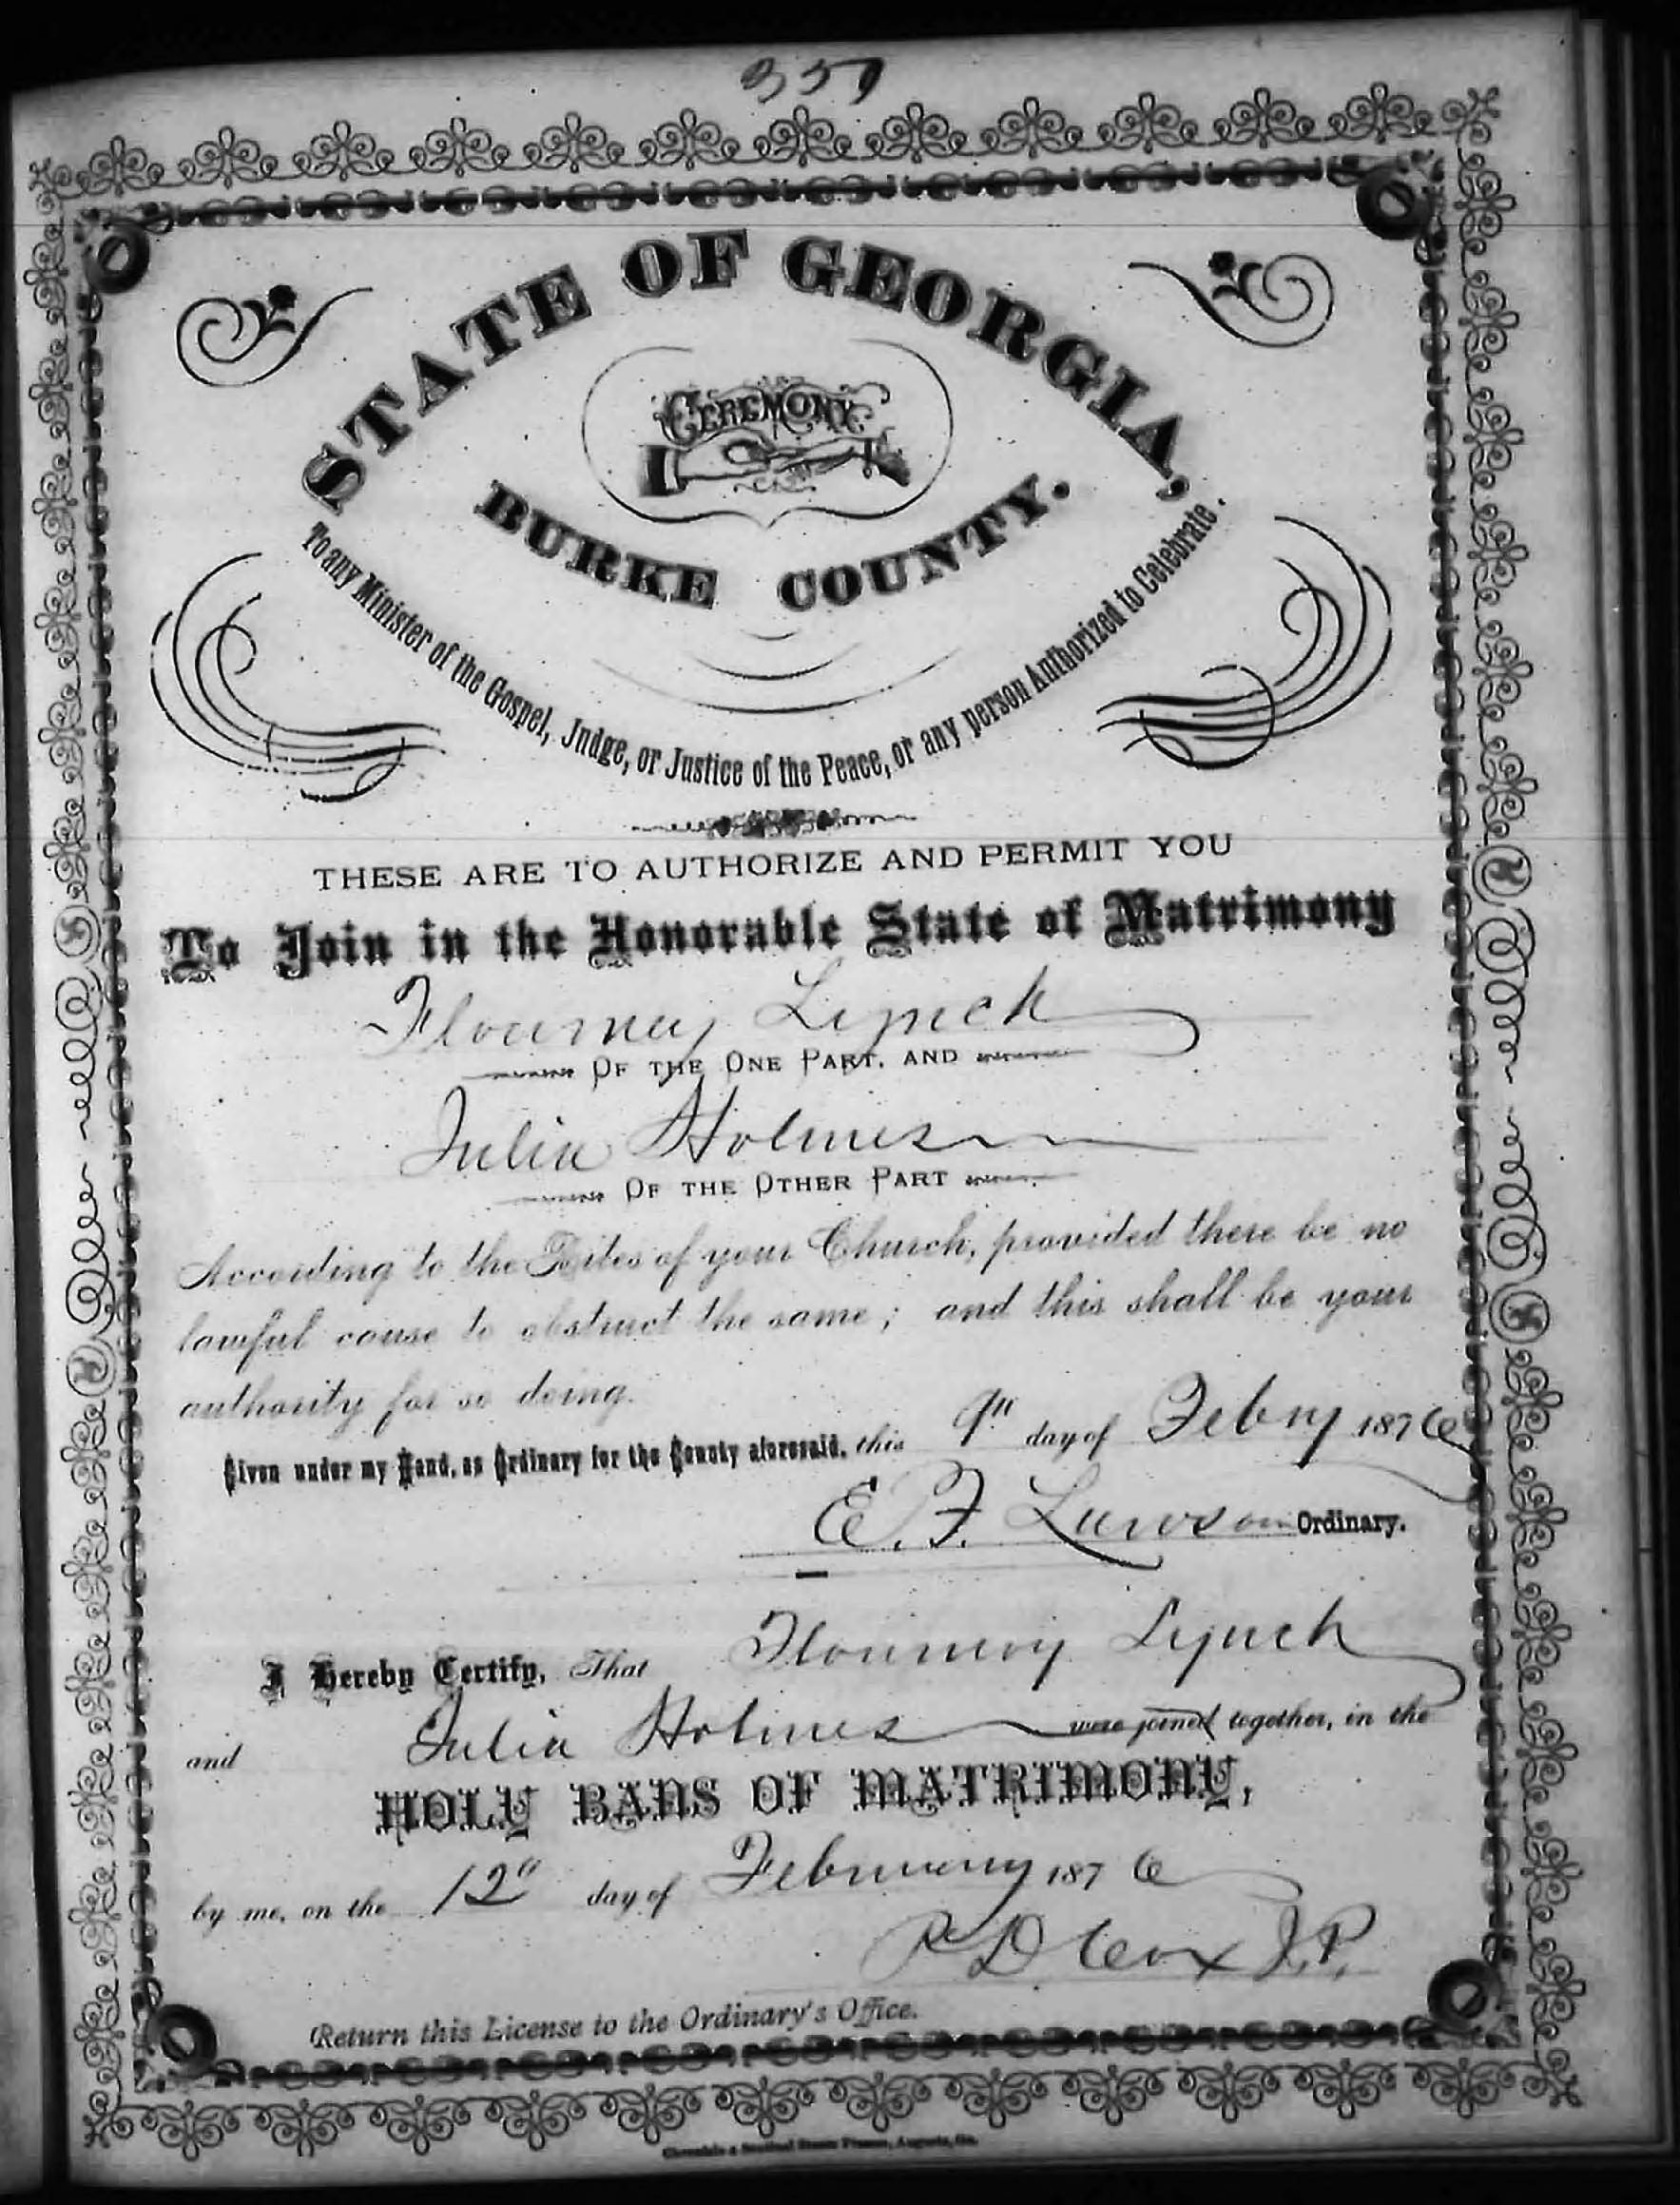 STATE OF GEORGIA,
CEREMONY
BURKE COUNTY.
To any Minister of the Gospel, Judge, or Justice of the Peace, or any person Authorized to Celebrate.
THESE ARE TO AUTHORIZE AND PERMIT YOU
To Join in the Honorable State of Matrimony
Flournoy Lynch
OF THE ONE PART, AND
Julia Holmes
OF THE OTHER PART
According to the Rites of your Church, provided there be no
lawful cause to obstruct the same; and this shall be your
authority for so doing.
Given under my Hand, as Ordinary for the County aforesaid, this 9" day of Febry 1876
E. F. Lawson Ordinary.
I Hereby Certify, That Flournoy Lynch
and Julia Holmes were joined together, in the
HOLY BANS OF MATRIMONY,
by me, on the 12" day of February 1876
R D Cox J.P.
Return this License to the Ordinary's Office.
Chronicle & Sentinel Steam Presses, Augusta, Ga.